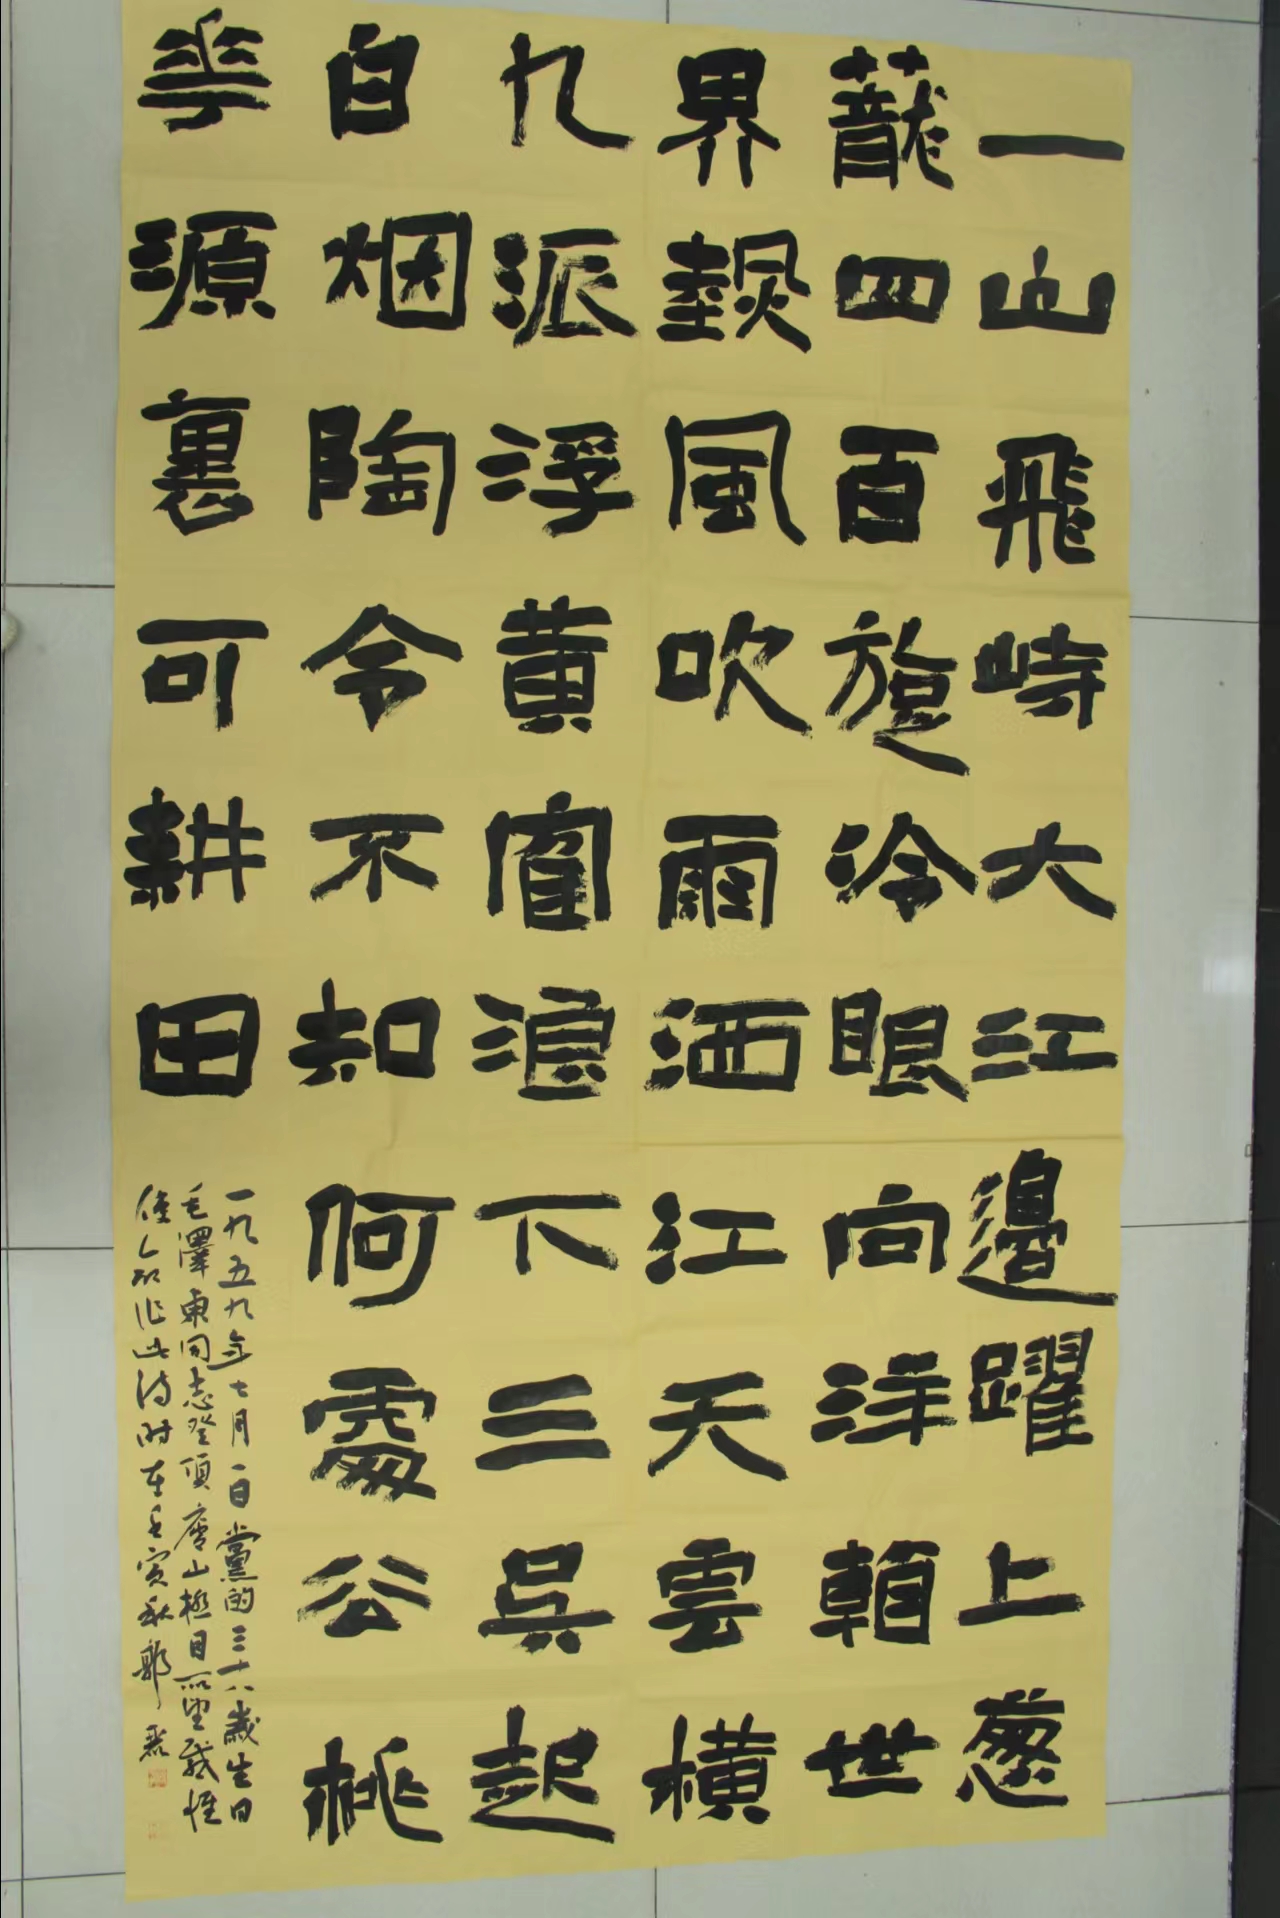 一山飛峙大江邊躍上葱
蘢四百旋冷眼向洋看世
界熱風吹雨洒江天雲橫
九派浮黄鶴浪下三吳起
白烟陶令不知何處去桃
花源裏可耕田
一九五九年七月一日黨的三十八歲生日
毛澤東同志登頂廬山極目所望感慨
作此詩時在壬寅秋郭